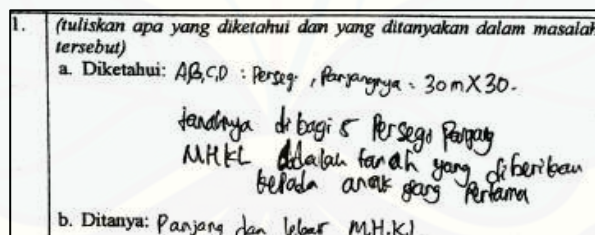 1. (tuliskan apa yang diketahui dan yang ditanyakan dalam masalah
tersebut)
a. Diketahui: A,B,C,D : Persegi, Panjangnya = 30 m X 30.
tanahnya di bagi 5 Persegi Panjang
MHKL Adalah tanah yang diberikan
kepada anak yang Pertama
b. Ditanya: Panjang dan lebar M.H.K.L